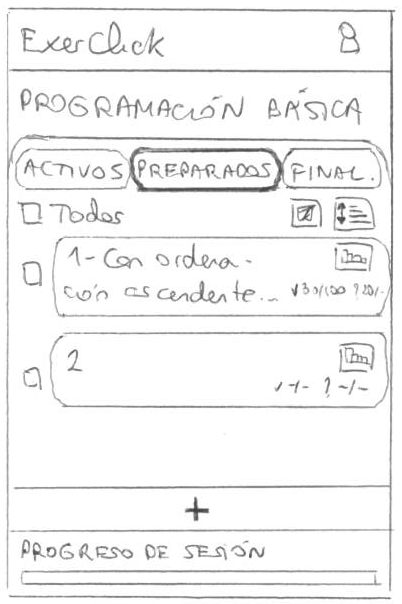 ExerClick
PROGRAMACIÓN BÁSICA
ACTIVOS PREPARADOS FINAL.
Todos
1- Con ordena-
ción ascendente... ✓30/100 ?20/-
2
✓-/- ?-/-
+
PROGRESO DE SESIÓN